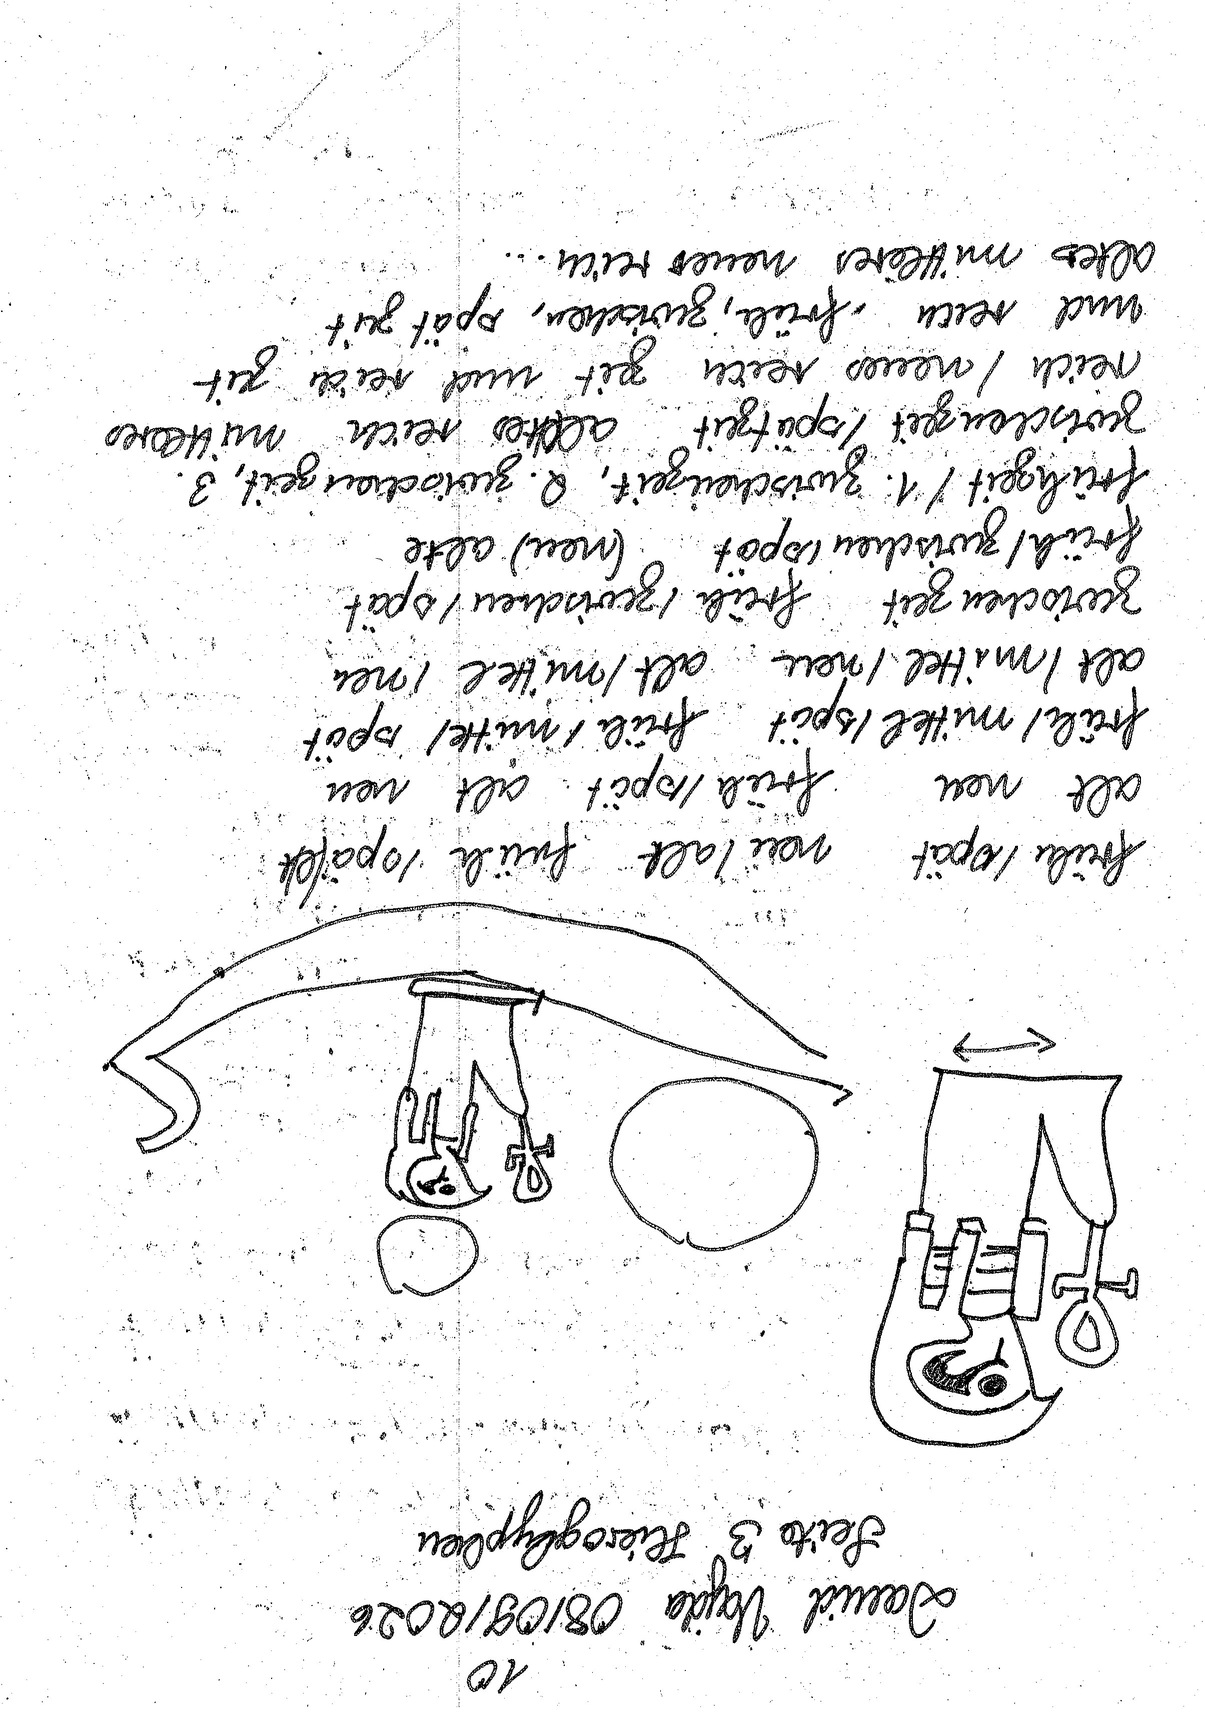 10
David Vajda 08/09/2026
Seite 3 Hieroglyphen
früh/spät neu/alt früh/spät
alt neu früh/spät alt neu
früh/mittel/spät früh/mittel/spät
alt/mittel/neu alt/mittel/neu
zwischenzeit früh/zwischen/spät
früh/zwischen/spät (neu) alte
frühzeit/1. zwischenzeit, 2. zwischenzeit, 3.
zwischenzeit/spätzeit altes reich mittleres
reich/neues reich zeit und reich zeit
und reich, früh, zwischen, spät zeit
altes mittleres neues reich...